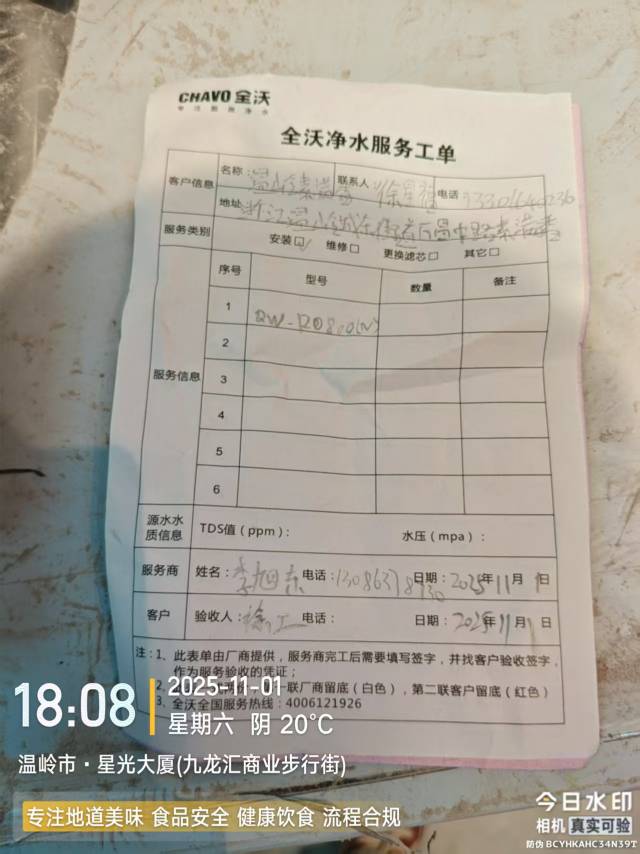 CHAVO 全沃
专注厨房净水
全沃净水服务工单
客户信息 名称: 联系人 徐星 电话
地址: 浙江温
服务类别 安装☑ 维修□ 更换滤芯□ 其它□
服务信息 序号 型号 数量 备注
1 QW-RO800(N)
2
3
4
5
6
源水水质信息 TDS值(ppm): 水压(mpa):
服务商 姓名:李旭东 电话: 日期:2025年11月1日
客户 验收人:徐工 电话: 日期:2025年11月1日
注:1、此表单由厂商提供,服务商完工后需要填写签字,并找客户验收签字,
作为服务验收的凭证;
2、 一联厂商留底(白色),第二联客户留底(红色)
3、全沃全国服务热线:4006121926
18:08 2025-11-01
星期六 阴 20°C
温岭市·星光大厦(九龙汇商业步行街)
专注地道美味 食品安全 健康饮食 流程合规
今日水印
相机 真实可验
防伪 BCYHKAHC34N39T